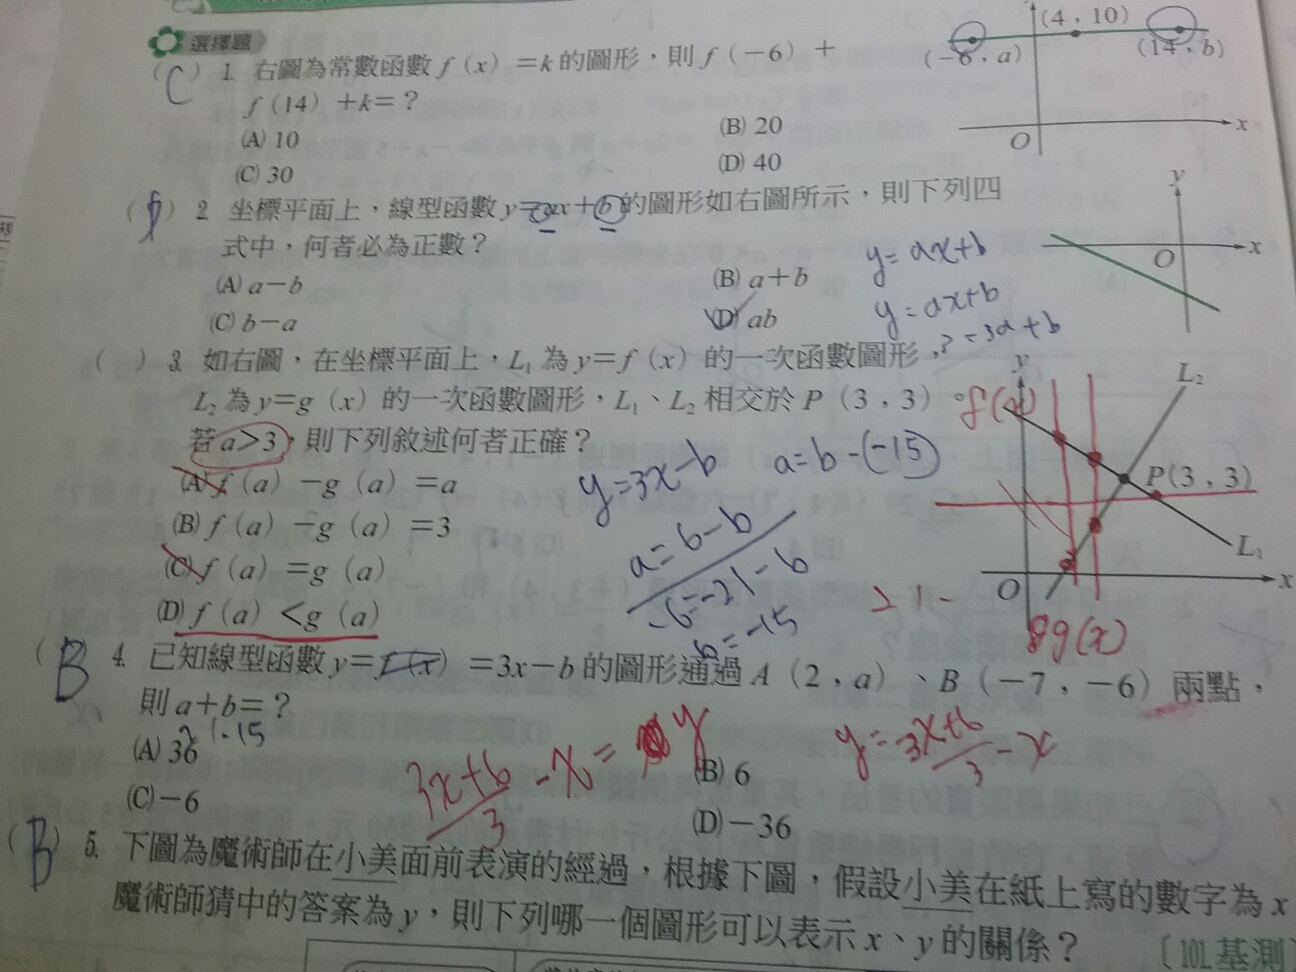 選擇題
(C) 1. 右圖為常數函數 f(x)=k的圖形，則 f(-6)+
f(14)+k=？
(A) 10
(B) 20
(C) 30
(D) 40
(4，10)
(-6，a)
(14，b)
O
x
(D) 2. 坐標平面上，線型函數 y=ax+b的圖形如右圖所示，則下列四
式中，何者必為正數？
(A) a-b
(B) a+b
(C) b-a
(D) ab
y=ax+b
y=ax+b
3=3a+b
y
x
O
( ) 3. 如右圖，在坐標平面上，L₁ 為 y=f(x) 的一次函數圖形，
L₂ 為 y=g(x) 的一次函數圖形，L₁、L₂ 相交於 P(3，3)。
若 a>3，則下列敘述何者正確？
(A) f(a)-g(a)=a
(B) f(a)-g(a)=3
(C) f(a)=g(a)
(D) f(a)<g(a)
y=3x-b
a=b-(-15)
a=6-b
-6=-21-b
b=-15
f(x)
y
L₂
P(3，3)
L₁
O
x
g(x)
21-
(B) 4. 已知線型函數 y=f(x)=3x-b 的圖形通過 A(2，a)、B(-7，-6) 兩點，
則 a+b=？
(A) 36
21-15
(B) 6
(C) -6
(D) -36
3x+6/3 -x= y
y=3x+6/3 -x
(B) 5. 下圖為魔術師在小美面前表演的經過，根據下圖，假設小美在紙上寫的數字為 x
魔術師猜中的答案為 y，則下列哪一個圖形可以表示 x、y 的關係？
〔101.基測〕